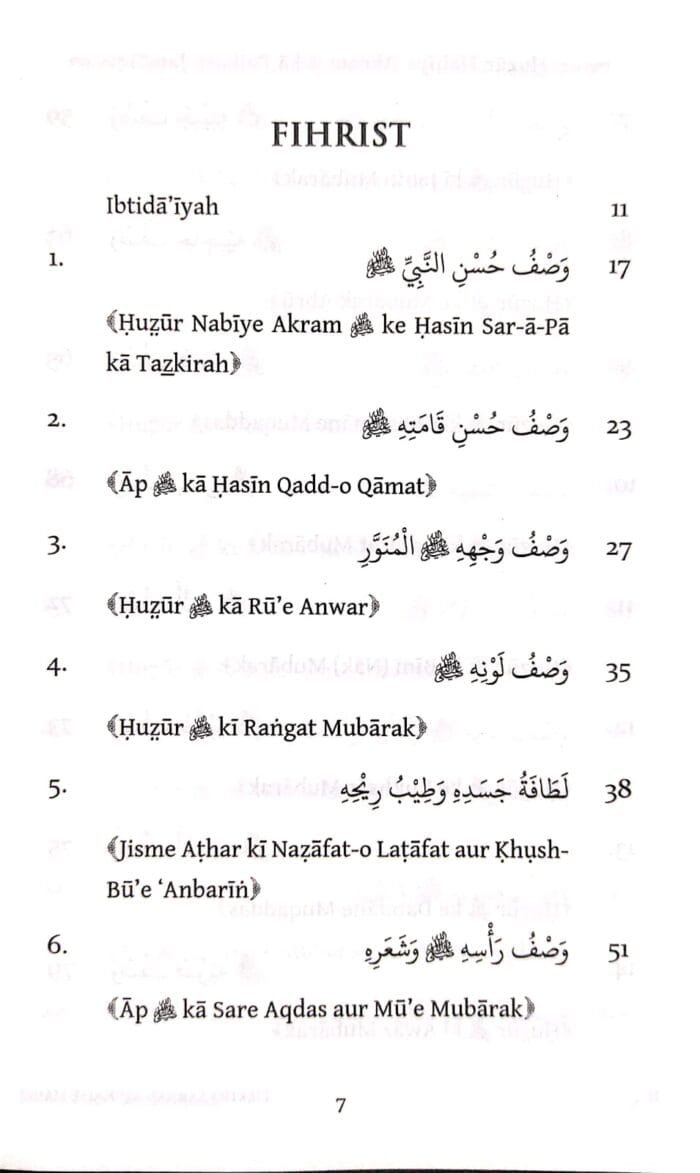 FIHRIST
Ibtidā’īyah 11
1. وَصْفُ حُسْنِ النَّبِيِّ ﷺ 17
﴾Ḥuz̤ūr Nabīye Akram ﷺ ke Ḥasīn Sar-ā-Pā
kā Taẕkirah﴿
2. وَصْفُ حُسْنِ قَامَتِهِ ﷺ 23
﴾Āp ﷺ kā Ḥasīn Qadd-o Qāmat﴿
3. وَصْفُ وَجْهِهِ ﷺ الْمُنَوَّرِ 27
﴾Ḥuz̤ūr ﷺ kā Rū’e Anwar﴿
4. وَصْفُ لَوْنِهِ ﷺ 35
﴾Ḥuz̤ūr ﷺ kī Raṅgat Mubārak﴿
5. لَطَافَةُ جَسَدِهِ وَطِيْبُ رِيْحِهِ 38
﴾Jisme Aṭhar kī Naẓāfat-o Laṭāfat aur Ḳhụsh-
Bū’e ‘Anbarīṅ﴿
6. وَصْفُ رَأْسِهِ ﷺ وَشَعَرِهِ 51
﴾Āp ﷺ kā Sare Aqdas aur Mū’e Mubārak﴿
7